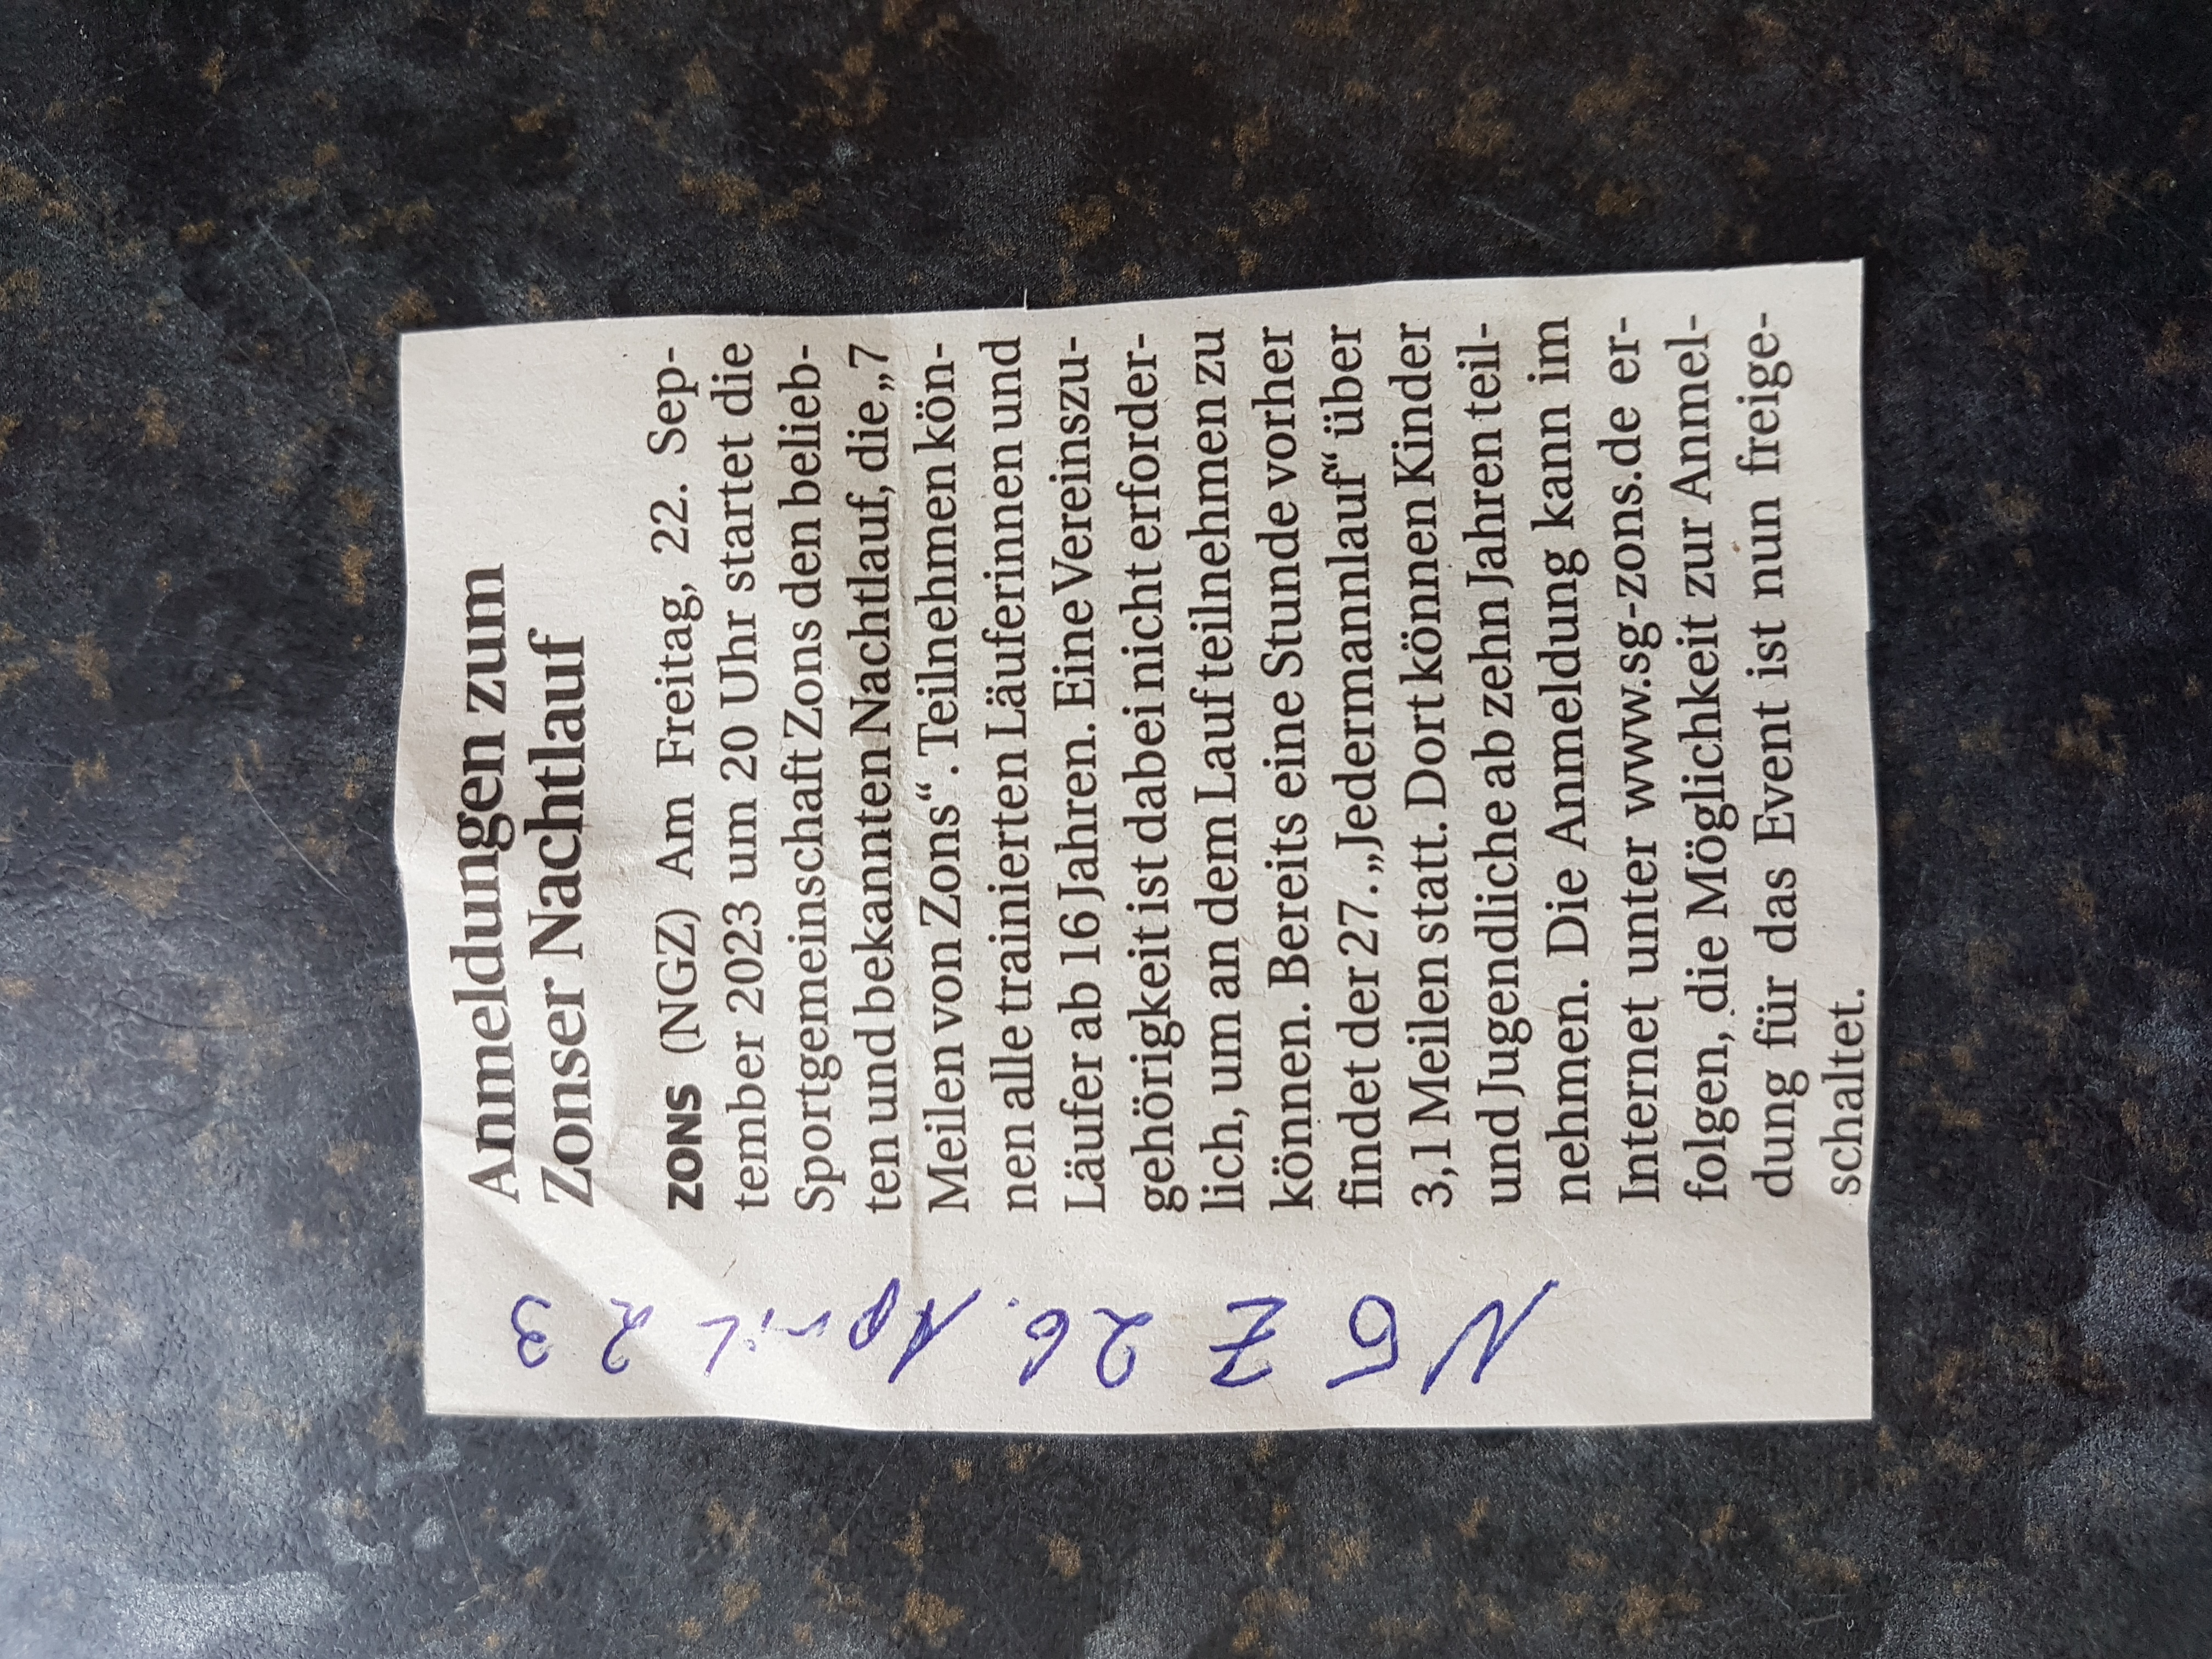 Anmeldungen zum
Zonser Nachtlauf
ZONS (NGZ) Am Freitag, 22. Sep-
tember 2023 um 20 Uhr startet die
Sportgemeinschaft Zons den belieb-
ten und bekannten Nachtlauf, die „7
Meilen von Zons“. Teilnehmen kön-
nen alle trainierten Läuferinnen und
Läufer ab 16 Jahren. Eine Vereinszu-
gehörigkeit ist dabei nicht erforder-
lich, um an dem Lauf teilnehmen zu
können. Bereits eine Stunde vorher
findet der 27. „Jedermannlauf“ über
3,1 Meilen statt. Dort können Kinder
und Jugendliche ab zehn Jahren teil-
nehmen. Die Anmeldung kann im
Internet unter www.sg-zons.de er-
folgen, die Möglichkeit zur Anmel-
dung für das Event ist nun freige-
schaltet.
NGZ 26. April 23